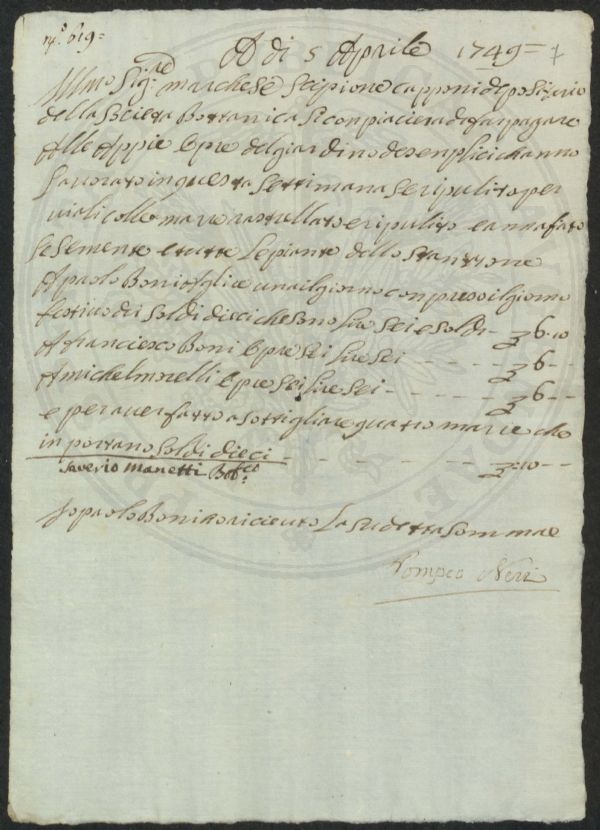 N.º 619=
A di 5 Aprile 1749=
Illmo Sigre marchese Scipione capponi depositario
della Societa Bottanica Si conpiacierà di far pagare
Alle Appie Opre del giardino de Senplici channo
Lavorato in questa Settimana Se ripulito per
viali colle marre rastrellato e ripulito e annafiato
le Semente e tutte Le piante dello Stanzzone
A paolo Boni Aglie una il giorno conpreso il giorno
festivo dei Soldi dieci che Sono lire Sei e Soldi - £ 6.10
A franciesco Boni Opre Sei lire Sei - - - - £ 6 - -
A michel morelli Opre Sei lire Sei - - - - - £ 6 - -
e per aver fatto a Sottigliare quatro marre che
in portano Soldi dieci - - - - - - - £ :10 - -
Saverio Manetti Botco
Io paolo Boni o riceuto La Sudetta Somma
Pompeo Neri